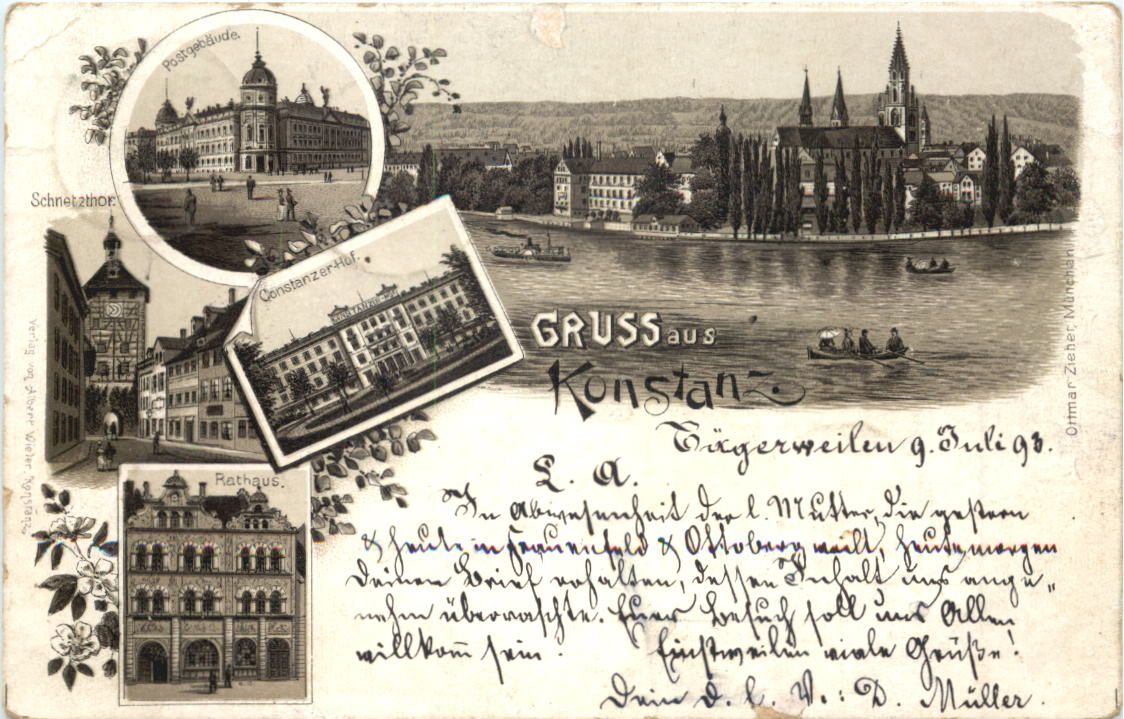 Postgebäude.
Schnetzthor.
Constanzer-Hof.
CONSTANZER-HOF
GRUSS aus
Konstanz
Rathaus.
Verlag von Albert Wieler, Konstanz.
Ottmar Zieher, München.
Tägerweilen 9. Juli 98.
L. A.
In Abwesenheit der l. Mutter, die gestern
& heute in Frauenfeld & Ottoberg weilt, heute morgen
Deinen Brief erhalten, dessen Inhalt uns ange„
nehm überraschte. Euer Besuch soll uns Allen
willkom̄ sein. Einstweilen viele Grüße!
Dein d. l. V.: D. Müller.